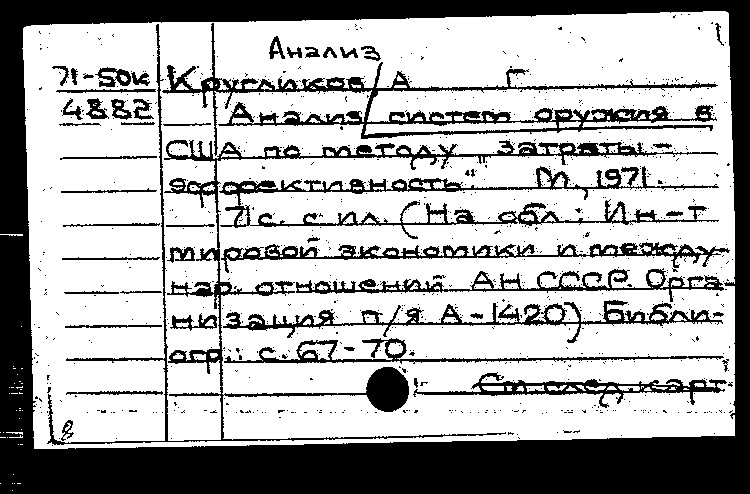 Анализ
71-50к Кругликов, А Г
4882 Анализ систем оружия в
США по методу "затраты-
эффективность". М., 1971.
71с. с ил. (На обл.: Ин-т
мировой экономики и между-
нар. отношений АН СССР. Орга-
низация п/я А-1420) Библи-
огр.: с. 67-70.
См след. карт
8